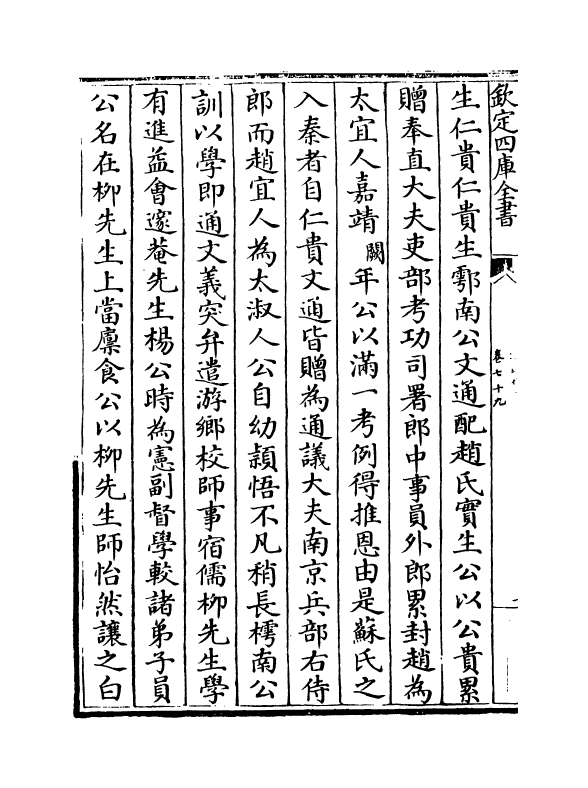 欽定四庫全書
卷七十九
生仁貴仁貴生鄠南公文通配趙氏實生公以公貴累
贈奉直大夫吏部考功司署郎中事員外郎累封趙為
太宜人嘉靖闕年公以滿一考例得推恩由是蘇氏之
入秦者自仁貴文通皆贈為通議大夫南京兵部右侍
郎而趙宜人為太淑人公自幼穎悟不凡稍長樗南公
訓以學即通文義突弁遣游鄉校師事宿儒柳先生學
有進益會邃菴先生楊公時為憲副督學較諸弟子員
公名在柳先生上當廪食公以柳先生師怡然讓之白